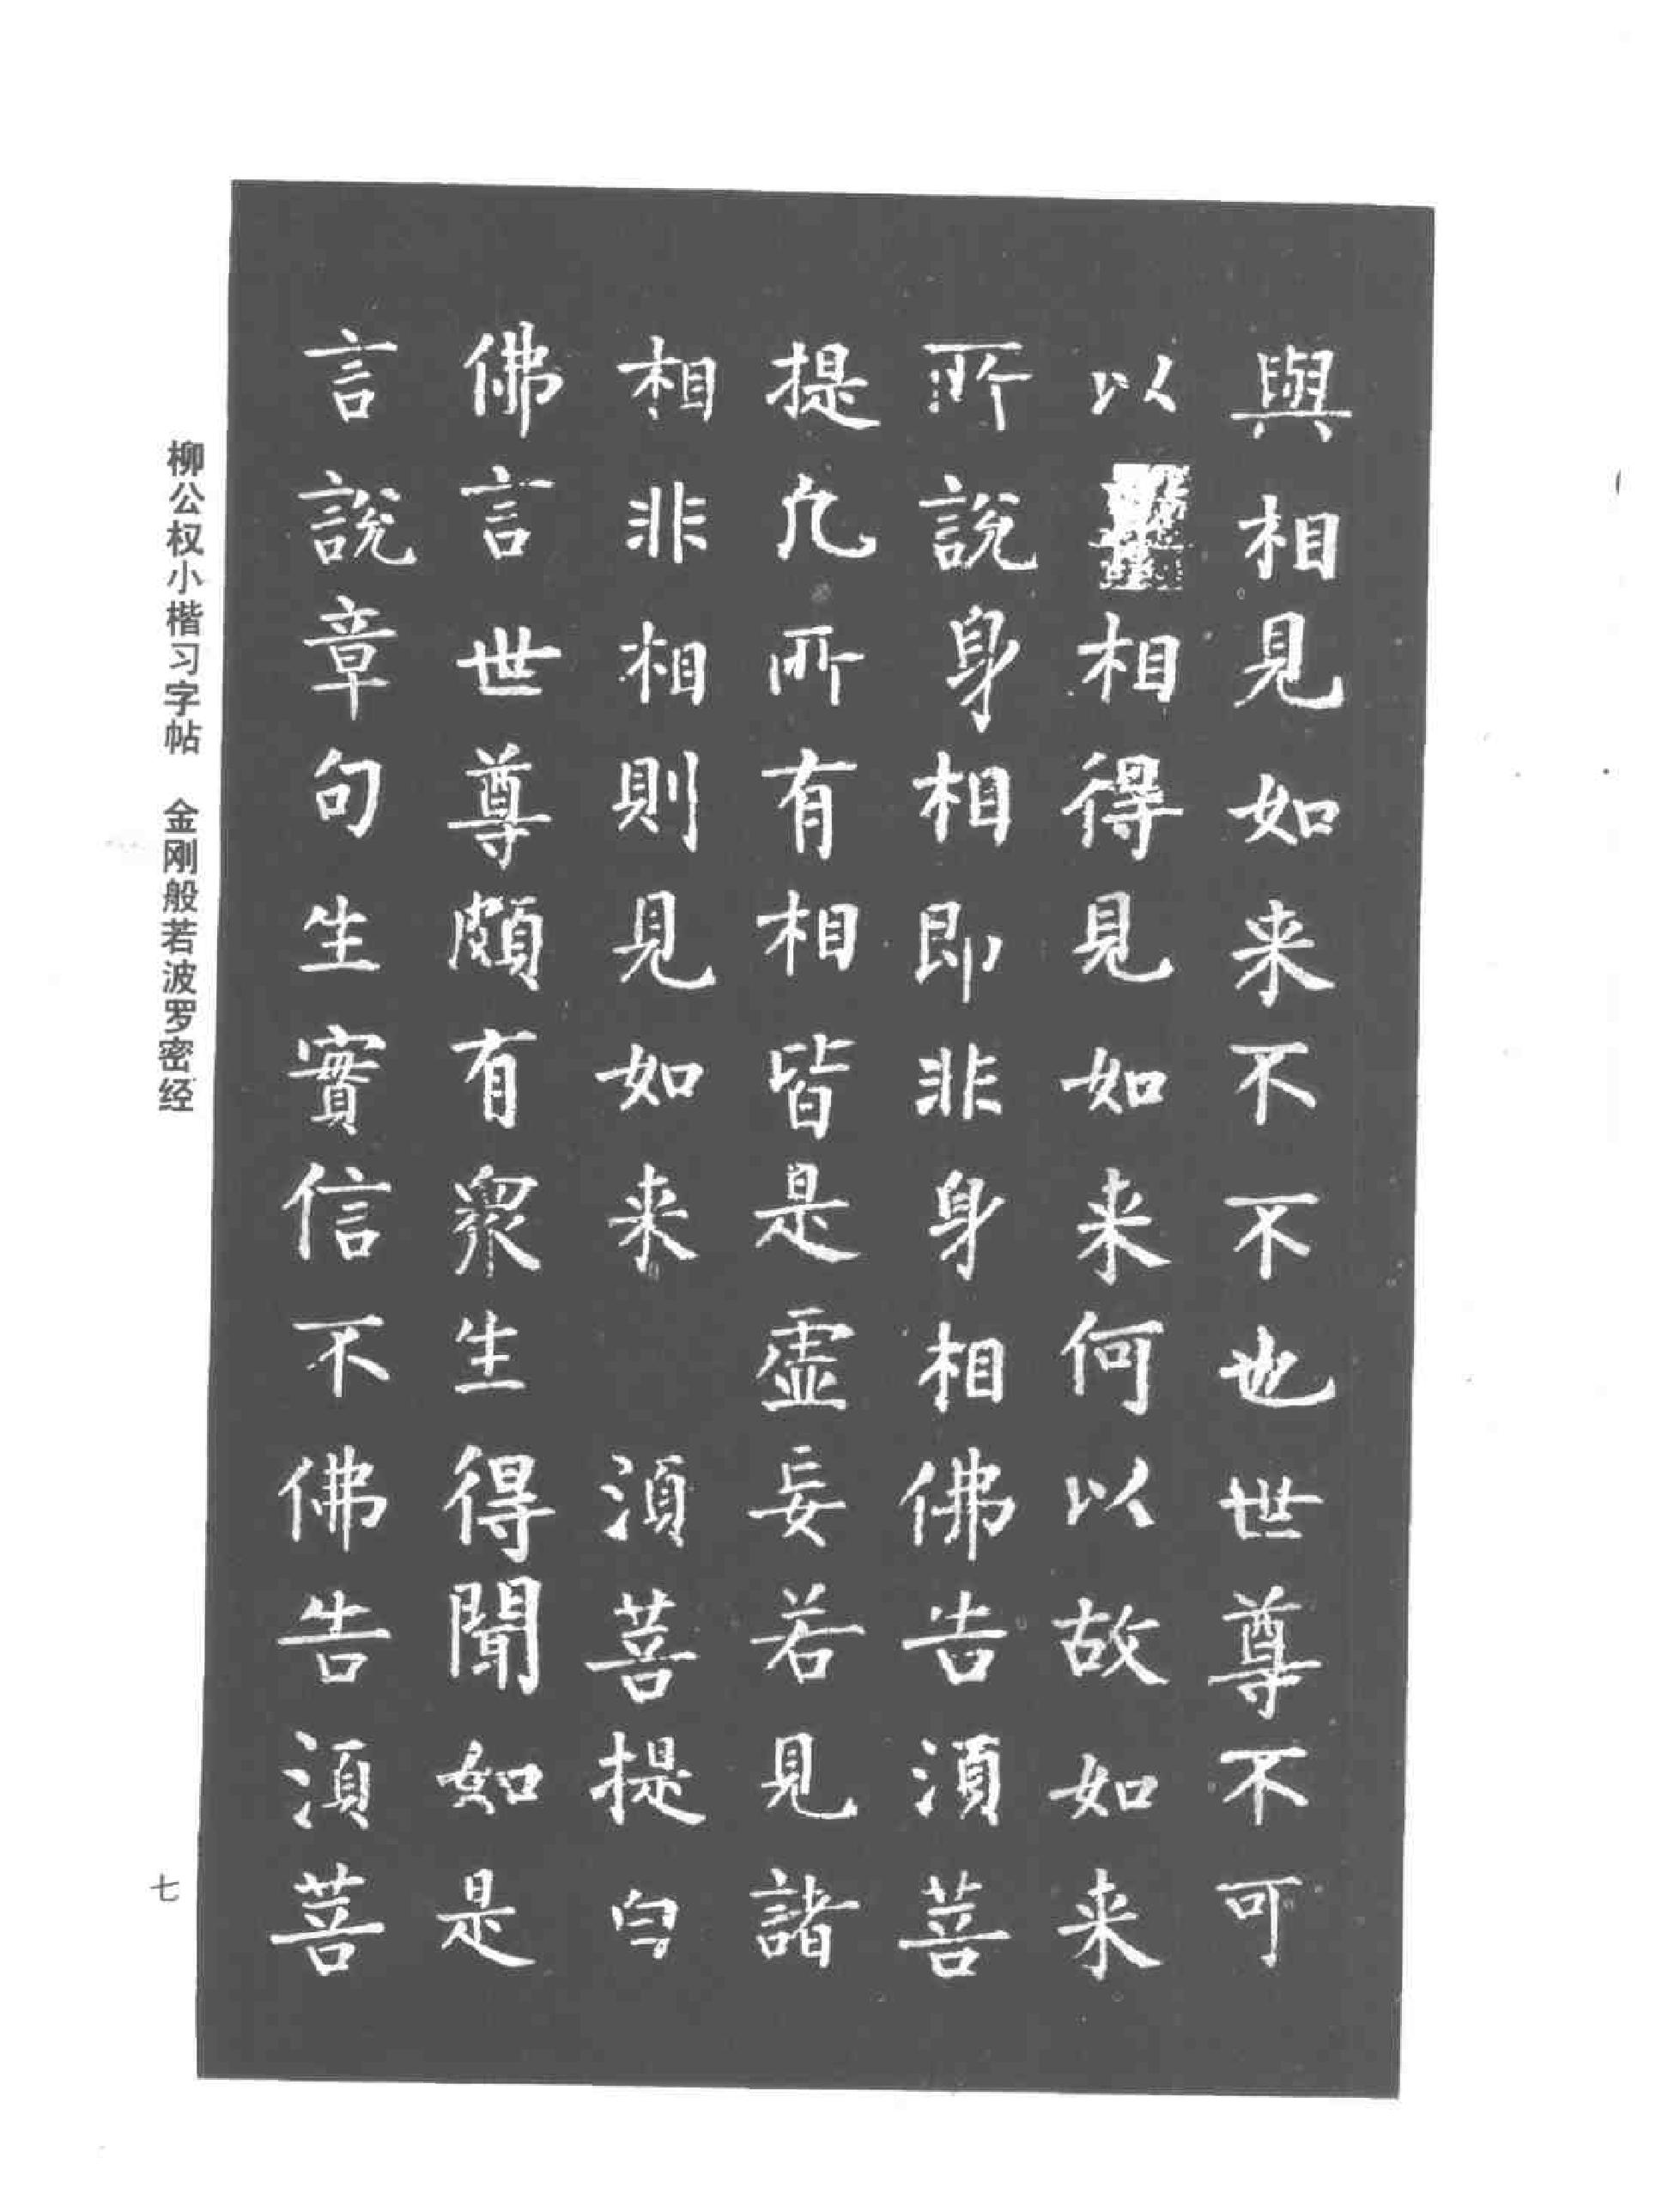 與相見如来不不也世尊不可
以相得見如来何以故如来
所說身相即非身相佛告須菩
提凡所有相皆是虛妄若見諸
相非相則見如来 須菩提白
佛言世尊頗有衆生得聞如是
言說章句生實信不佛告須菩
柳公权小楷习字帖 金刚般若波罗密经
七